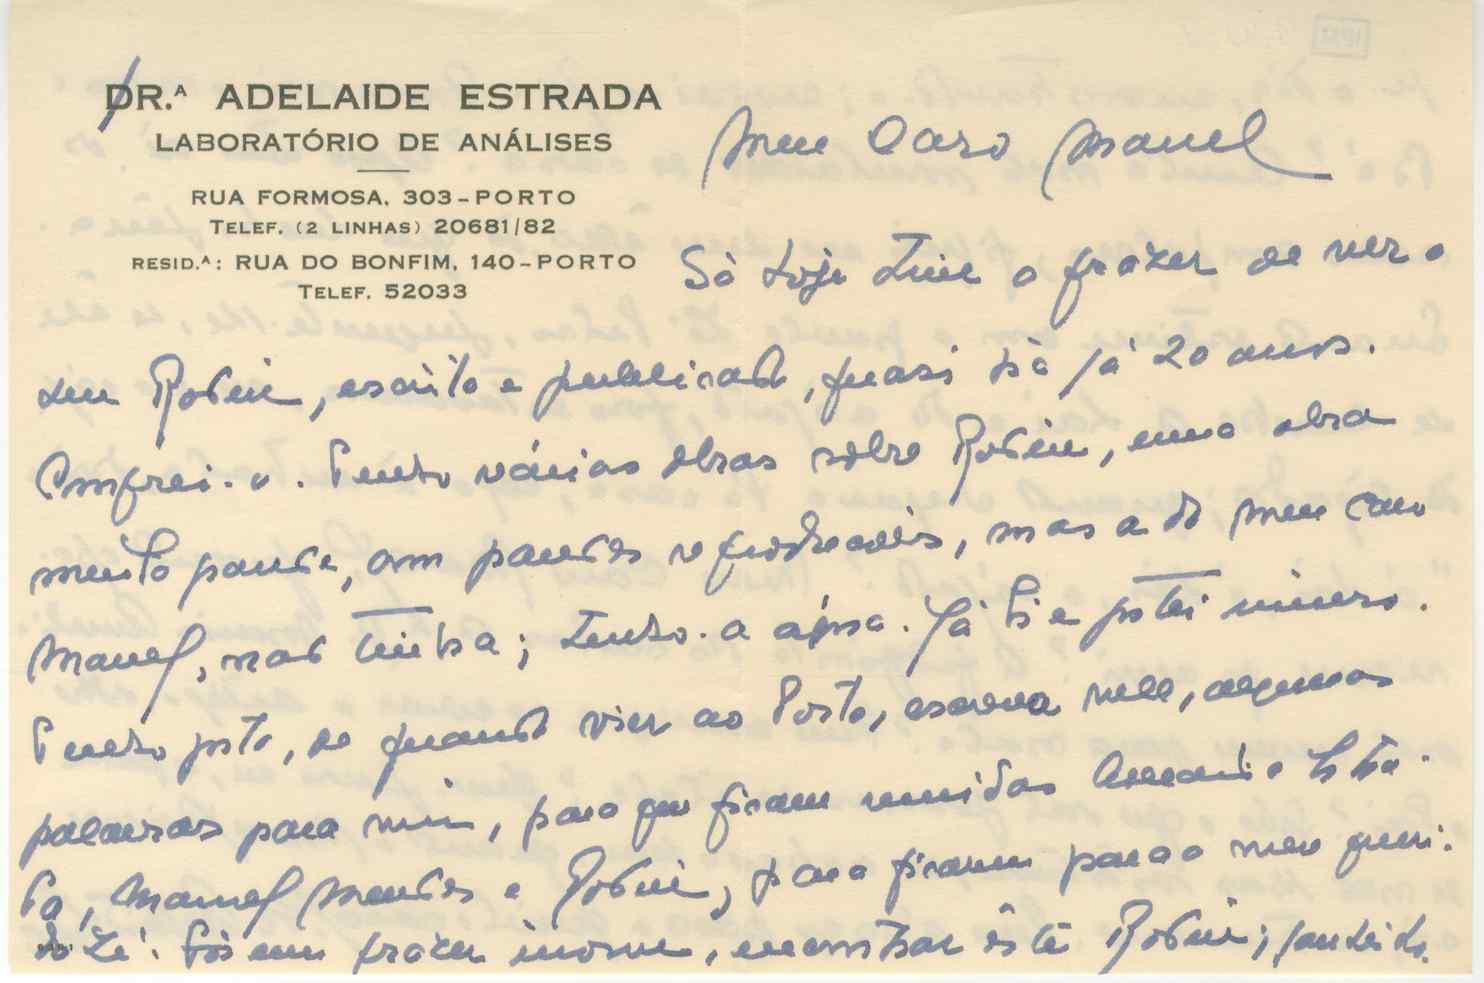 DR.ᴬ ADELAIDE ESTRADA
LABORATÓRIO DE ANÁLISES
RUA FORMOSA, 303-PORTO
TELEF. (2 LINHAS) 20681/82
RESID.ᴬ: RUA DO BONFIM, 140-PORTO
TELEF. 52033
Meu Caro Manel
Só hoje tive o prazer de ver o
seu Rodin, escrito e publicado, quasi há já 20 anos.
Comprei-o. Tenho várias obras sobre Rodin, uma obra
muito grande, com grandes reproduções, mas a do meu caro
Manel, não tinha; tenho-a agora. Já li e gostei imenso.
Tenho gosto, de quando vier ao Porto, escreva nele, algumas
palavras para mim, para que ficam unidos
Manuel Mendes e Rodin, para ficarem para o meu queri-
do Zé. Foi um prazer enorme, encontrar êste Rodin;